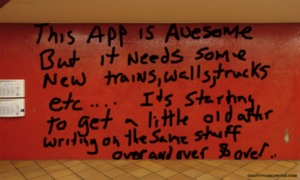 This App is Awesome
But it Needs Some
New trains, walls, trucks
etc.... It's starting
to get a little old after
writing on the same stuff
over and over & over..